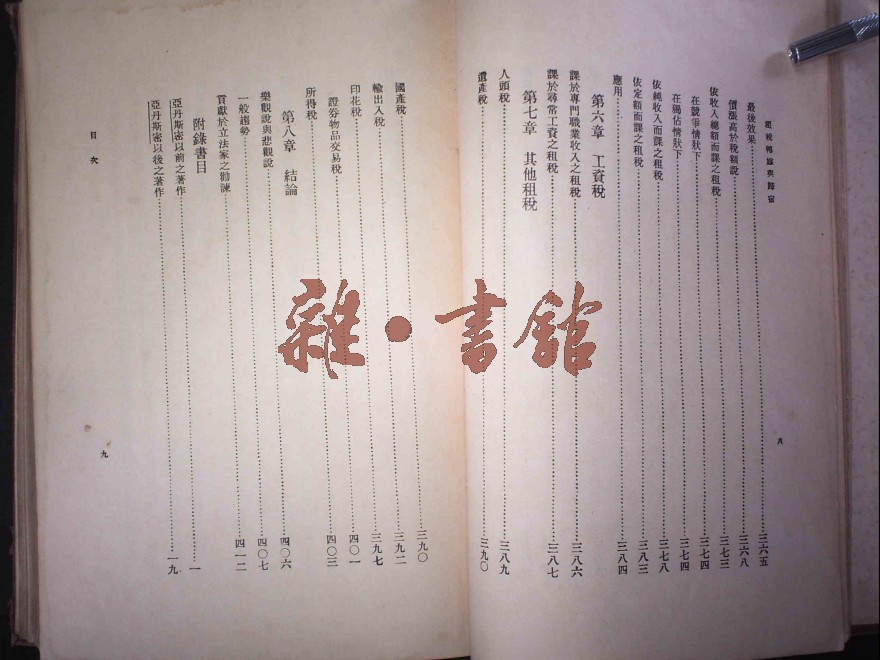 租稅轉嫁與歸宿
最後效果……三六五
價漲高於稅額說……三六八
依收入總額而課之租稅……三七三
在競爭情狀下……三七四
在獨佔情狀下……三七四
依純收入而課之租稅……三七八
依定額而課之租稅……三八三
應用……三八四
第六章 工資稅
課於專門職業收入之租稅……三八六
課於尋常工資之租稅……三八七
第七章 其他租稅
人頭稅……三八九
遺產稅……三九〇
八
國產稅……三九〇
輸出入稅……三九二
印花稅……三九七
證券物品交易稅……四〇一
所得稅……四〇三
第八章 結論
樂觀說與悲觀說……四〇六
一般趨勢……四〇七
貢獻於立法家之勸諫……四一二
附錄書目
亞丹斯密以前之著作……一
亞丹斯密以後之著作……一九
目次
九
雜·書館